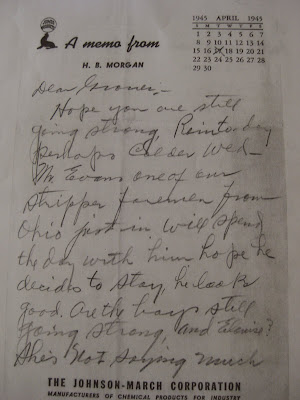 1945 APRIL 1945
S M T W T F S
1 2 3 4 5 6 7
8 9 10 11 12 13 14
15 16 17 18 19 20 21
22 23 24 25 26 27 28
29 30
A memo from
H. B. MORGAN
Dear Grover,-
Hope you are still
going strong, Rain today
perhaps Colder Wed-
Mr Evans one of our
stripper foremen from
Ohio just in will spend
the day with him hope he
decides to stay, he looks
good. Are the boys still
going strong, and Eloise?
She's Not saying much
THE JOHNSON-MARCH CORPORATION
MANUFACTURERS OF CHEMICAL PRODUCTS FOR INDUSTRY